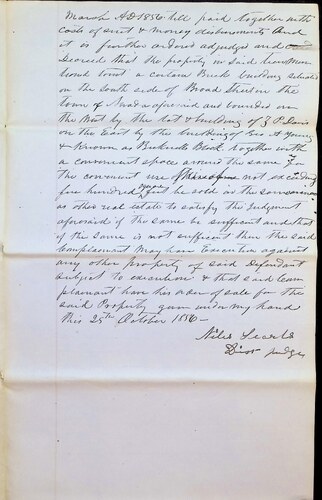 March AD 1856 till paid together with
costs of suit & money disbursements And
it is further ordered adjudged and
Decreed that the property in said
to wit a certain Brick building situated
on the South side of Broad Street in the
town of Nevada aforesaid and bounded on
the West by the lot & building of Z P Davis
on the East by the building of Geo A Young
& known as Bicknells Block together with
a convenient space around the same for
the convenient use not exceeding
five hundred feet be sold in the
as other real estate to satisfy the Judgment
aforesaid if the same be sufficient and that
if the same is not sufficient then the said
Complainant may have Execution against
any other property of said Defendant
subject to execution & that said Com
plainant have his order of sale for the
said Property given under my hand
this 25th October 1856 -
Niles Searls
Dist Judge